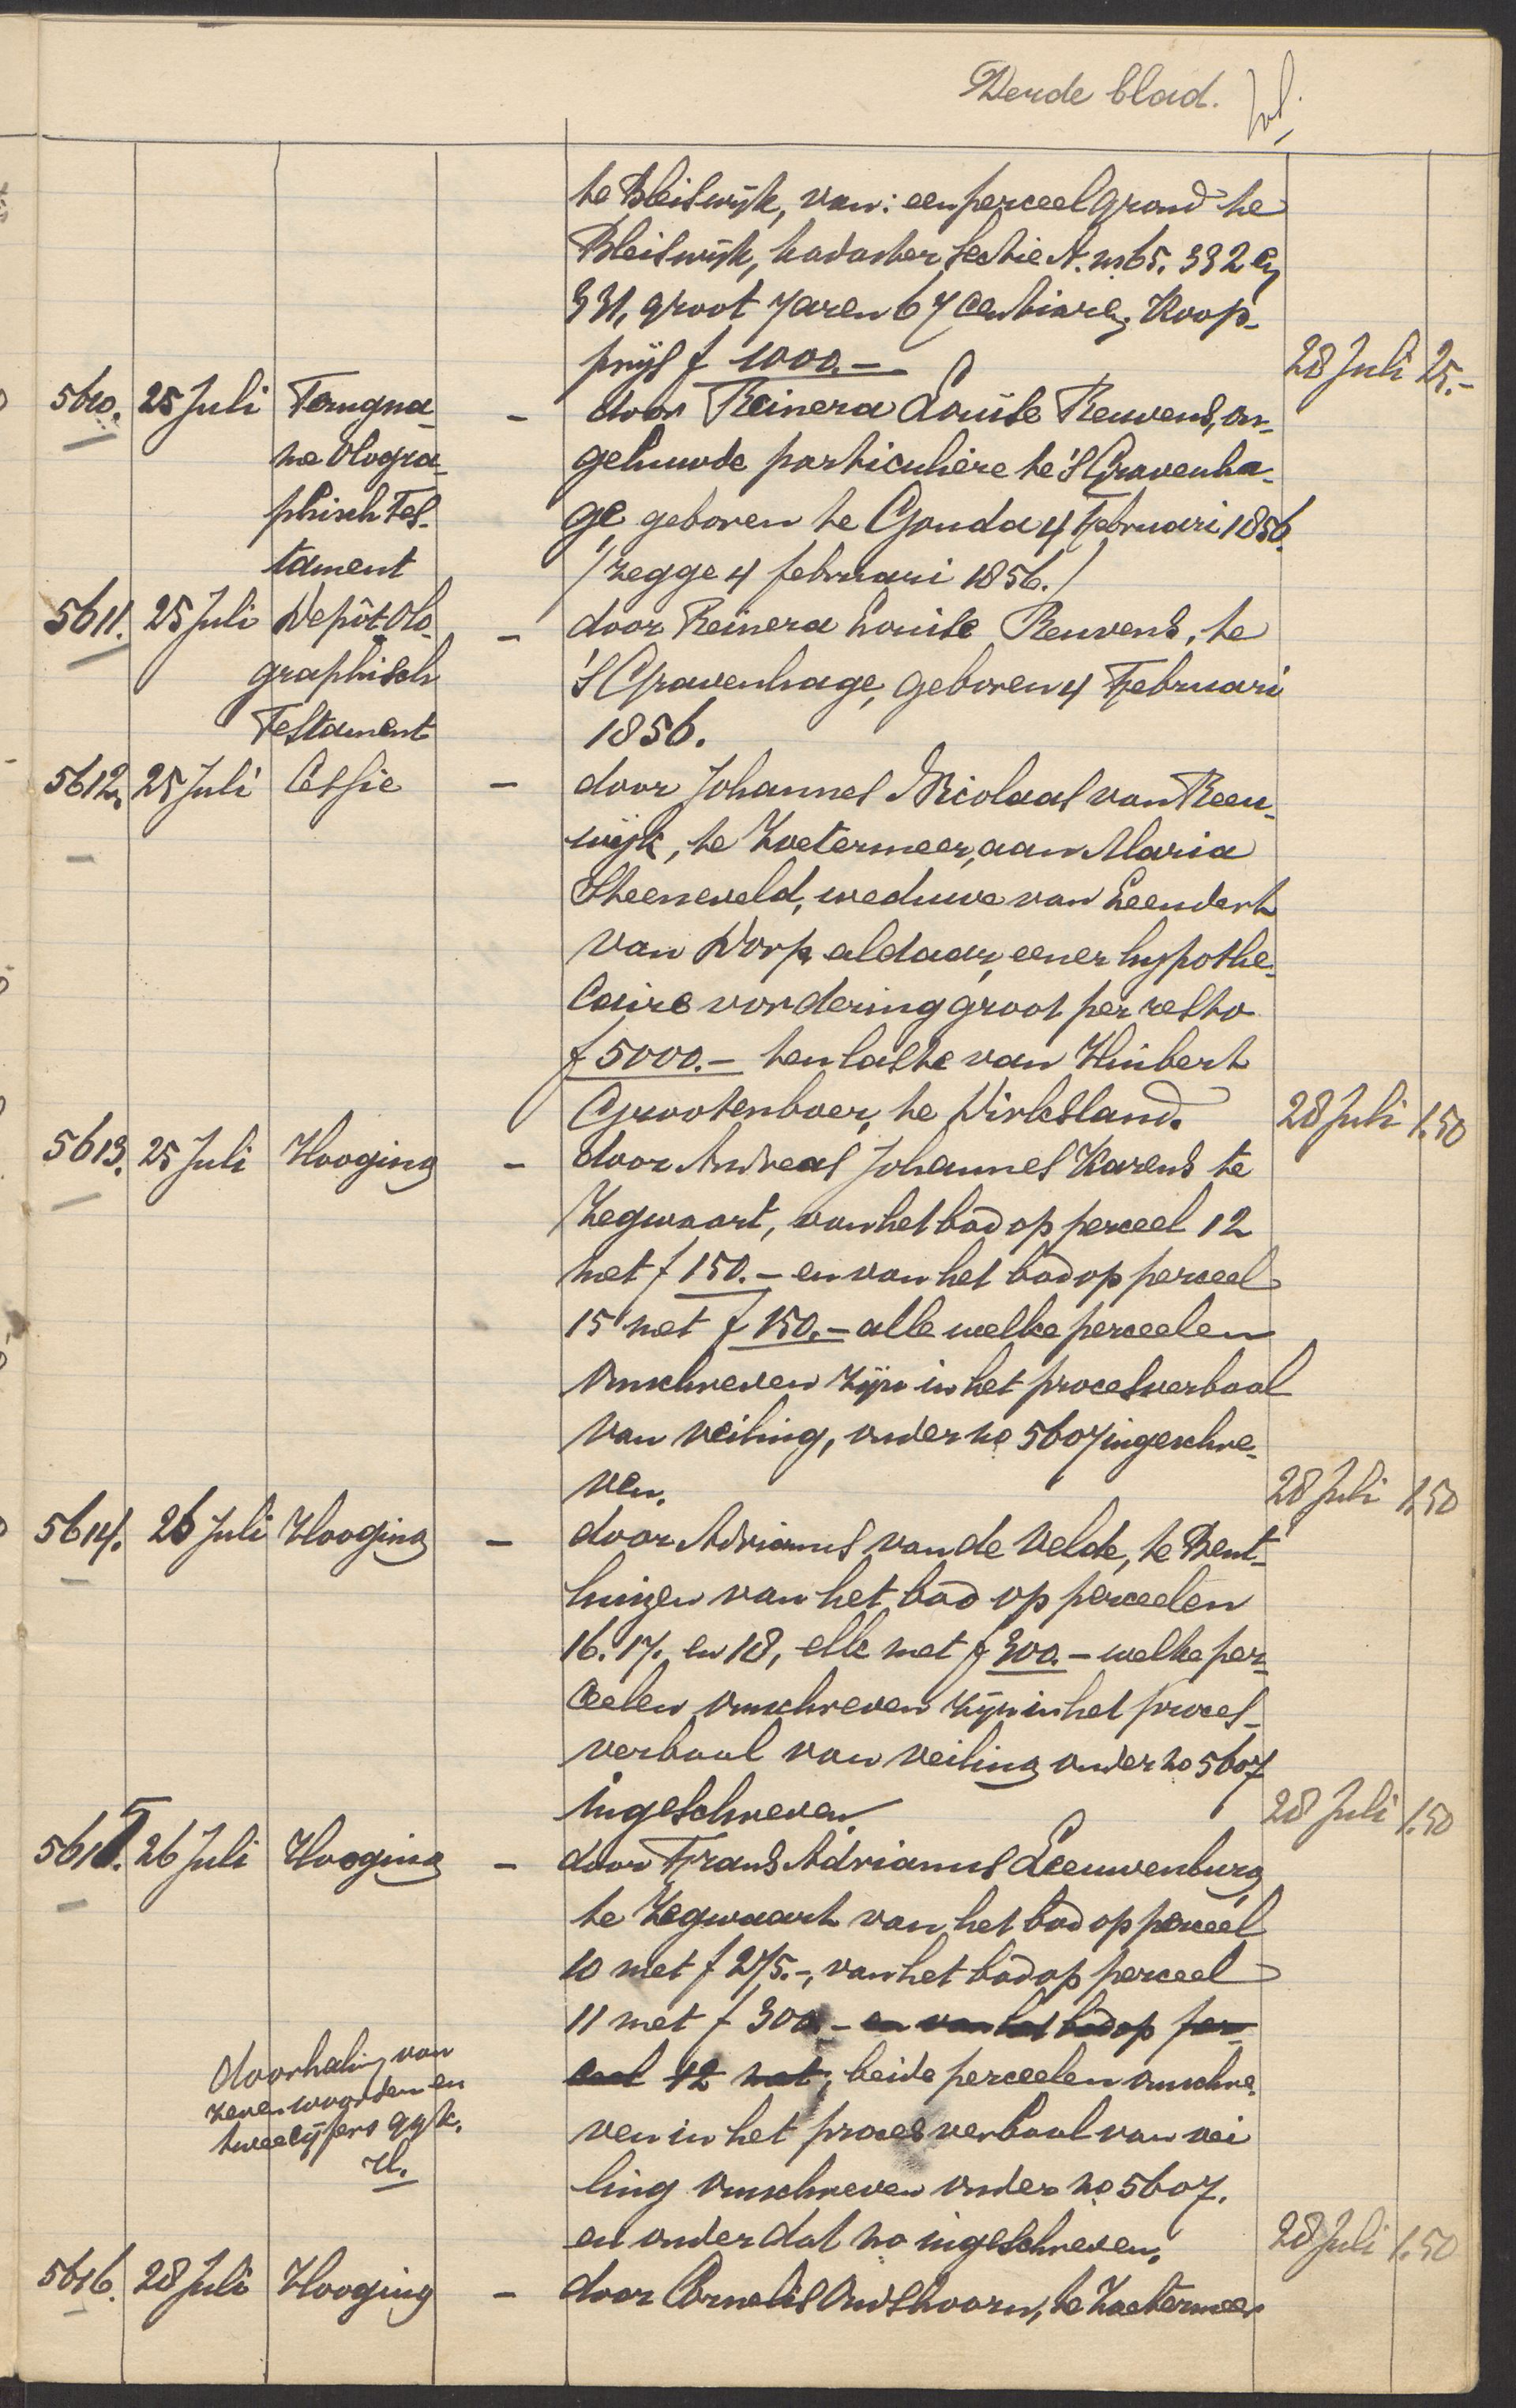 Derde blad.
te Bleiswijk, van: een perceel grond te
Bleiswijk, kadaster sectie A. nos 65. 332 en
331, groot 7 aren 67 centiaren, Koop-
prijs f 1000.- 28 Juli 25.-
5610. 25 Juli Terugna- - door Reinera Louise Reuvens, on-
me Ologra- gehuwde particulière te 'sGravenha-
phisch Tes- ge, geboren te Gouda 4 Februari 1856.
tament /zegge 4 februari 1856./
5611. 25 Juli Depôt Olo- - door Reinera Louise Reuvens, te
graphisch 'sGravenhage, geboren 4 Februari
Testament 1856.
5612. 25 Juli Cessie - door Johannes Nicolaas van Reeu-
wijk, te Zoetermeer, aan Maria
Steeneveld, weduwe van Leendert
van Dorp, aldaar, eener hypothe-
caire vordering groot per resto
f 5000.- ten laste van Huibert
Grootenboer, te Pirkesland. 28 Juli 1.50
5613. 25 Juli Hooging - door Andreas Johannes Karens te
Zegwaart, van het bod op perceel 12
met f 150.- en van het bod op perceel
15 met f 150.- alle welke perceelen
omschreven zijn in het procesverbaal
van veiling, onder no 5607 ingeschre-
ven. 28 Juli 1.50
5614. 26 Juli Hooging - door Adrianus van de Velde, te Bent-
huizen van het bod op perceelen
16. 17. en 18, elk met f 300.- welke per-
ceelen omschreven zijn in het proces-
verbaal van veiling onder no 5607
ingeschreven. 28 Juli 1.50
5615. 26 Juli Hooging - door Frans Adrianus Leeuwenburg,
te Zegwaart van het bod op perceel
10 met f 275.-, van het bod op perceel
11 met f 300.- en van het bod op per-
ceel 12 met, beide perceelen omschre-
doorhaling van
zeven woorden en
twee cijfers ggk.
ven in het proces verbaal van vei
ling omschreven onder no 5607.
en onder dat no ingeschreven. 28 Juli 1.50
5616. 28 Juli Hooging - door Cornelis Oudshoorn, te Zoetermeer